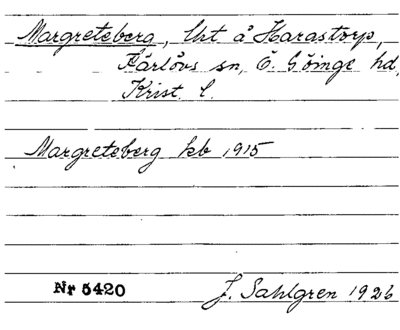 Margreteberg, lht å Harastorp,
Färlövs sn, Ö. Göinge hd,
Krist. l.
Margreteberg kb 1915
Nr 5420
J. Sahlgren 1926